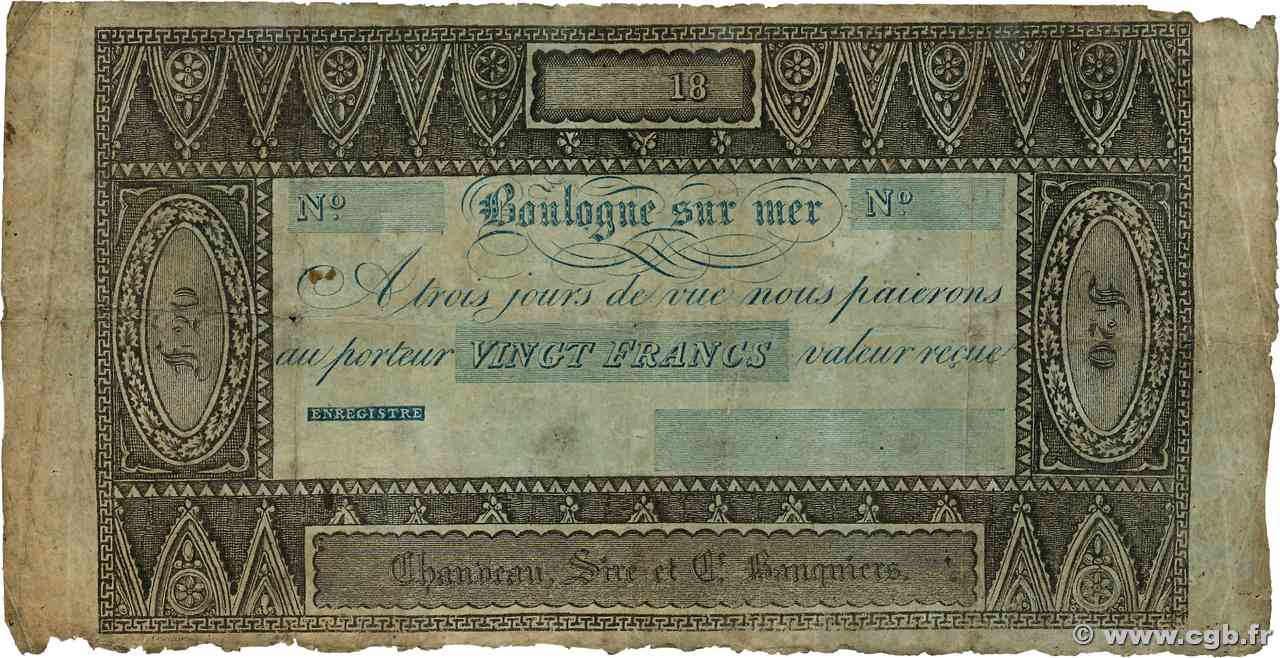 18
Nº Boulogne sur mer Nº
A trois jours de vue nous paierons
au porteur VINGT FRANCS valeur reçue
F 20
F 20
ENREGISTRE
Chauveau, Sire et Cⁱᵉ Banquiers.
© www.cgb.fr